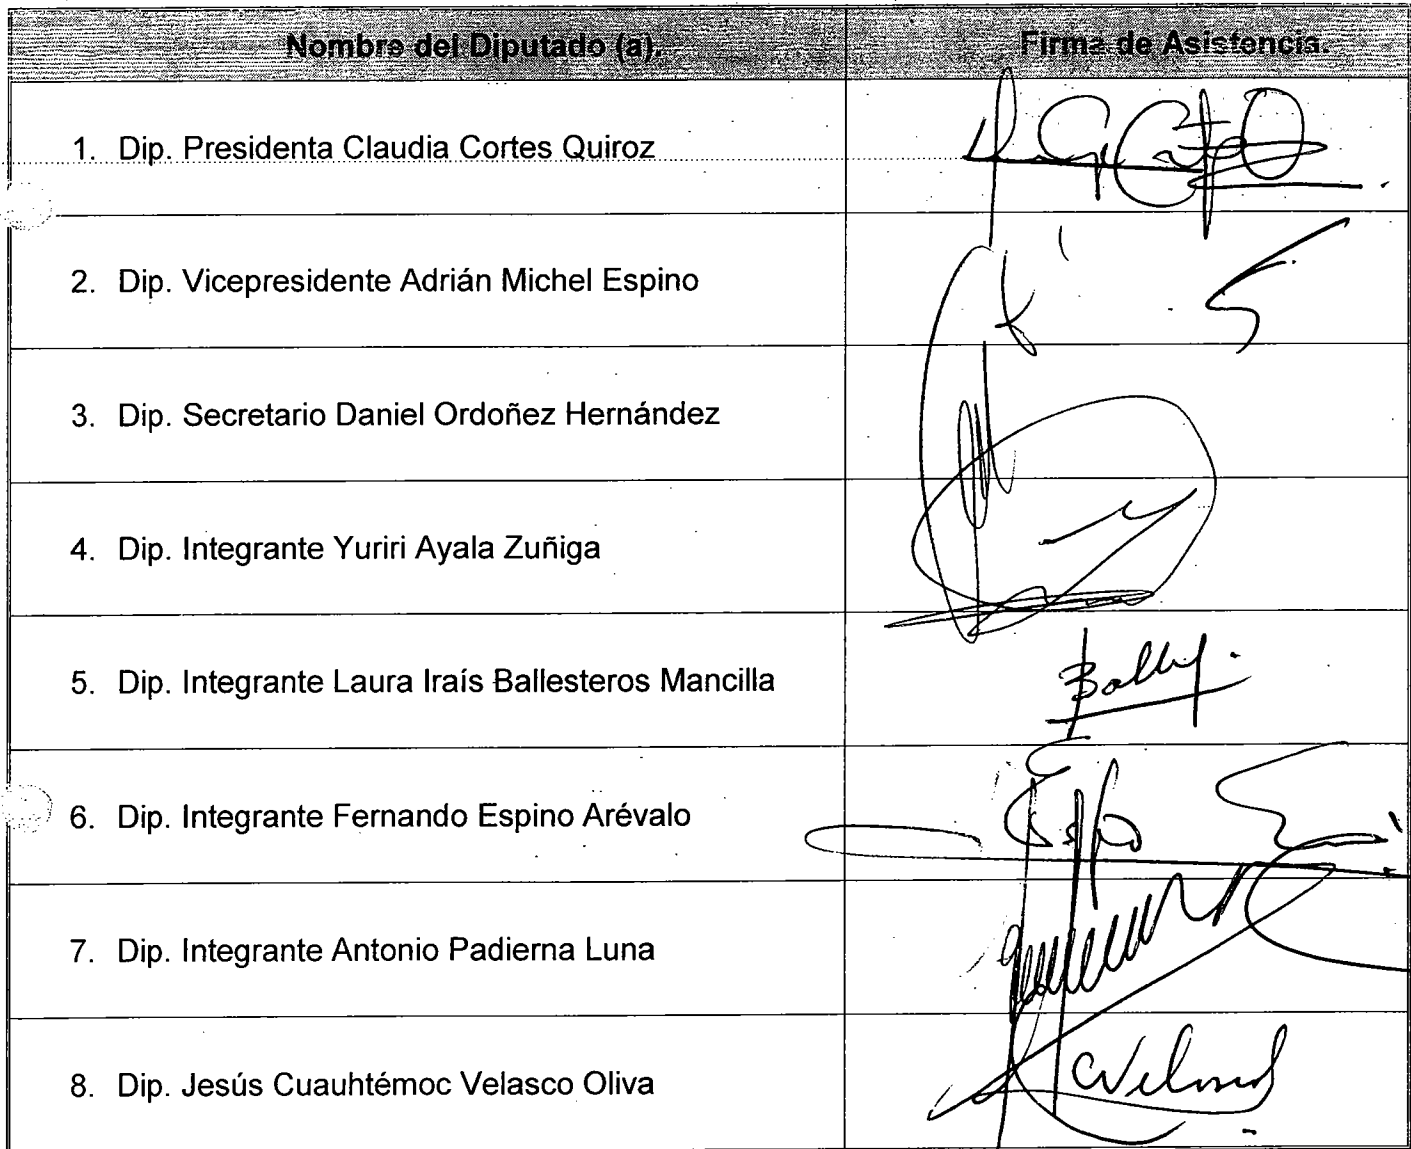 Nombre del Diputado (a). Firma de Asistencia.
1. Dip. Presidenta Claudia Cortes Quiroz
2. Dip. Vicepresidente Adrián Michel Espino
3. Dip. Secretario Daniel Ordoñez Hernández
4. Dip. Integrante Yuriri Ayala Zuñiga
5. Dip. Integrante Laura Iraís Ballesteros Mancilla
6. Dip. Integrante Fernando Espino Arévalo
7. Dip. Integrante Antonio Padierna Luna
8. Dip. Jesús Cuauhtémoc Velasco Oliva